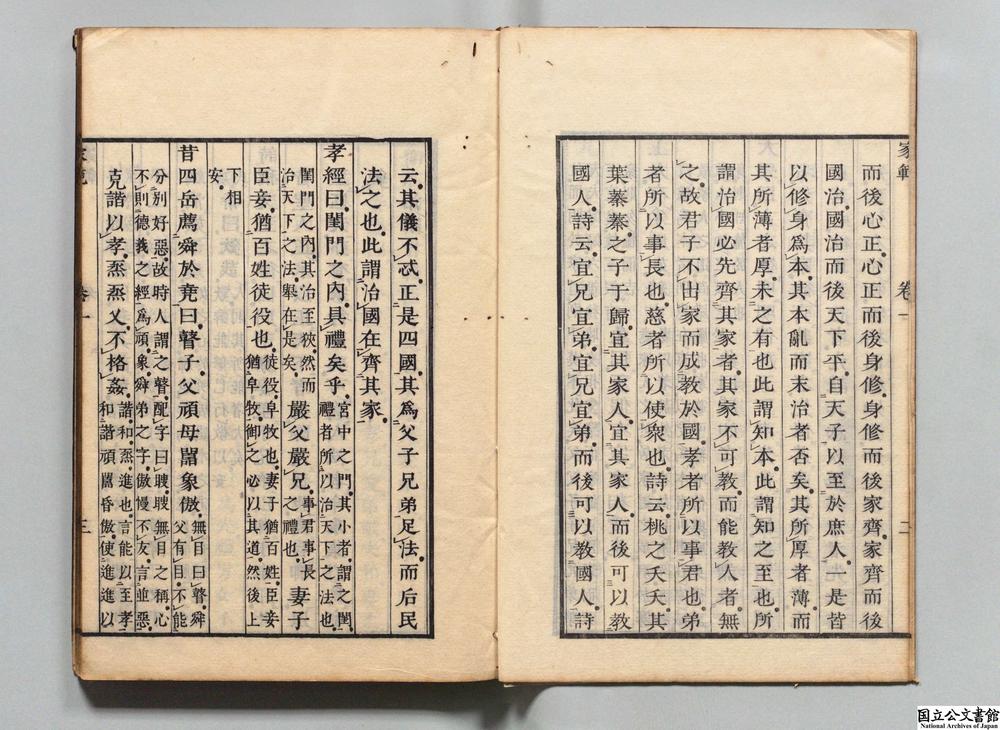 家範 卷一 二
而後心正。心正而後身修。身修而後家齊。家齊而後
國治。國治而後天下平。自天子以至於庶人。一是皆
以修身爲本。其本亂而末治者否矣。其所厚者薄。而
其所薄者厚。未之有也。此謂知本。此謂知之至也。所
謂治國必先齊其家者。其家不可教而能教人者。無
之。故君子不出家而成教於國。孝者所以事君也。弟
者所以事長也。慈者所以使衆也。詩云。桃之夭夭。其
葉蓁蓁。之子于歸。宜其家人。宜其家人。而後可以教
國人。詩云。宜兄宜弟。宜兄宜弟。而後可以教國人。詩
云。其儀不忒。正是四國。其爲父子兄弟足法。而后民
法之也。此謂治國在齊其家。
孝經曰。閨門之內。具禮矣乎。宮中之門。其小者謂之閨。禮者所以治天下之法也。
閨門之內。其治至狹。然而治天下之法。擧在是矣。嚴父嚴兄。事君事長之禮也。妻子
臣妾。猶百姓徒役也。徒役。皁牧也。妻子猶百姓。臣妾猶皁牧。御之必以其道。然後上
下相安。
昔四岳薦舜於堯曰。瞽子。父頑母嚚象傲。無目曰瞽。舜父有目。不能
分別好惡。故時人謂之瞽。配字曰瞍。瞍無目之稱。心不則德義之經爲頑。象舜弟之字。傲慢不友。言並惡。
克諧以孝。烝烝乂。不格姦。諧。和。烝。進也。言能以至孝和諧頑嚚昏傲。使進進以
家範 卷一 三
国立公文書館
National Archives of Japan